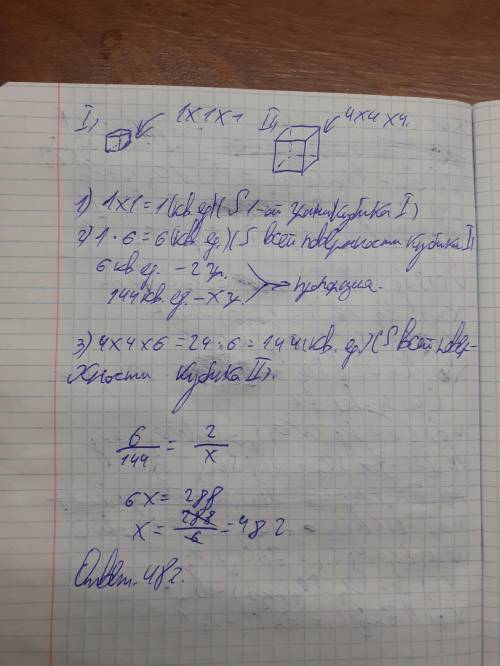 I) 1X1X1 II) 4x4 x4.
1) 1x1=1(кв. ед)(S 1-ой грани кубика I)
2) 1 · 6 = 6(кв. ед.)(S всей поверхности кубика I)
6 кв ед. – 2 гр.
144 кв. ед. – X гр. пропорция.
3) 4 x 4 x 6 = 24 · 6 = 144(кв. ед.)(S всей повер-
хности кубика II).
6/144 = 2/x
6x = 288
x = 288/6 = 48 г.
Ответ. 48 г.